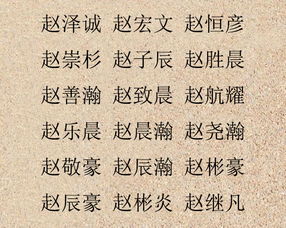 赵泽诚 赵宏文 赵恒彦
赵崇杉 赵子辰 赵胜晨
赵善瀚 赵致晨 赵航耀
赵乐晨 赵晨瀚 赵尧瀚
赵敬豪 赵辰瀚 赵彬豪
赵辰豪 赵彬炎 赵继凡